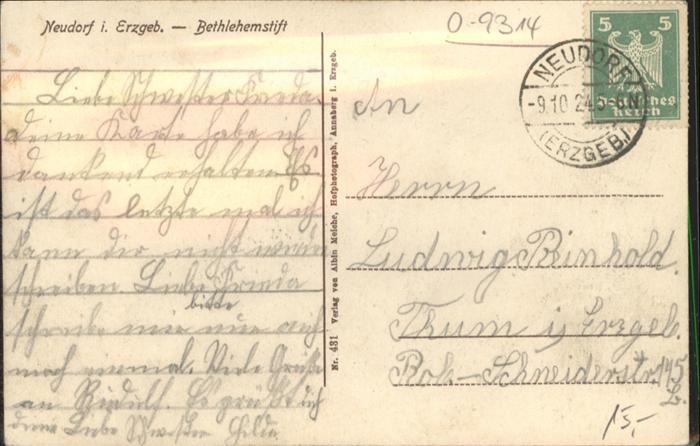 Neudorf i. Erzgeb. — Bethlehemstift
O-9314
5 5
Deutsches
Reich
NEUDORF
-9.10.24
(ERZGEB.)
Liebe Schwester Frieda.
deine Karte habe ich
dankend erhalten Es
ist das letzte mal ich
kann dir nicht
schreiben. Liebe Frieda
bitte
schreibe mir nur auch
noch einmal. Viele Grüße
an Rudolf. Es grüßt dich
deine Liebe Schwester Hilde.
Nr. 431 Verlag von Albin Meiche, Hofphotograph, Annaberg i. Erzgeb.
An
Herrn
Ludwig Reinhold.
Thum i. Erzgeb.
Schneiderstr. 145
15,-